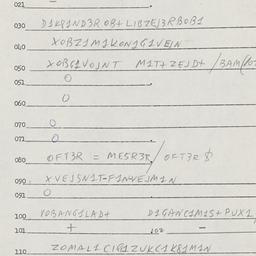 021 -
030 D1K81ND3R OB+ L1BZEJ3RBOB1
040 XOBZ1M1KON1G1VEIN
050 XOBG1VOJNT M1T+ZEJD+ /BAM
051 O
060 O
070 O
071 O
080 OFT3R = MESR3R / OFT3R $
090 XVEJSN1T-F1NVEJM1N
091 O
100 VOBANG1LAD+ D1GANC1M1S+PUX1
101 + 102 -
110 ZOMAL1C1G1ZUKC1K81M1N